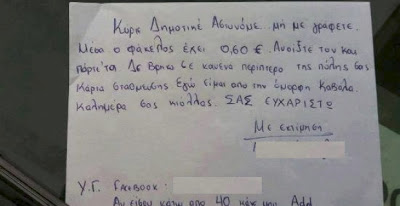 Κύριε Δημοτικέ Αστυνόμε.. μή με γράφετε.
Μέσα ο φάκελος έχει 0,60 €. Ανοίξτε τον και
πάρτε τα Δε Βρήκα σε κανένα περίπτερο της πόλης σας
Κάρτα στάθμευσης Εγώ είμαι απο την όμορφη Καβάλα.
Καλημέρα σας κιόλλας. ΣΑΣ ΕΥΧΑΡΙΣΤΩ
Με εκτίμηση
Υ.Γ. Facebook:
Αν είσαι κάτω απο 40 κάνε μου Add